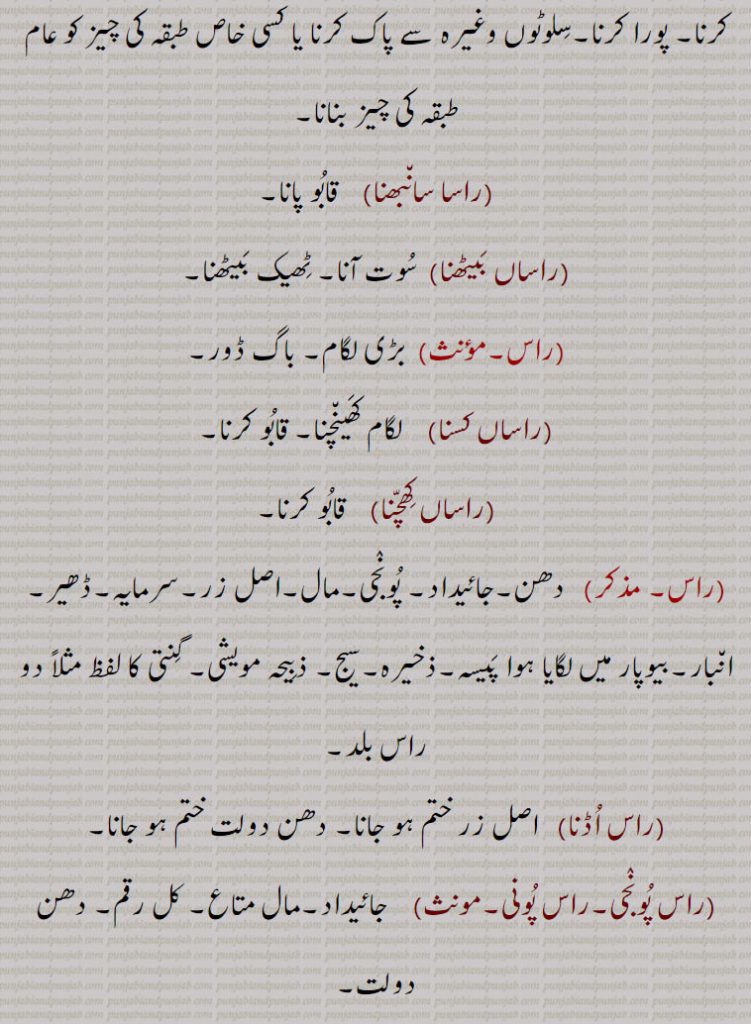 کرنا۔ پورا کرنا۔سِلوٹوں وغیرہ سے پاک کرنا یا کسی خاص طبقہ کی چیز کو عام
طبقہ کی چیز بنانا۔
(راسا سانّبھنا) قابُو پانا۔
(راساں بَیٹھنا) سُوت آنا۔ ٹِھیک بَیٹھنا۔
(راس۔مؤنث) بڑی لگام۔ باگ ڈور۔
(راساں کسنا) لگام کَھینّچنا۔ قابُو کرنا۔
(راساں کِھچّنا) قابُو کرنا۔
(راس۔ مذکر) دھن۔جائیداد۔ پُونْجی۔مال۔اصل زر۔سرمایہ۔ڈھیر۔
انّبار۔بیوپار میں لگایا ہوا پَیسہ۔ذخیرہ۔سیج۔ ذبیحہ مویشی۔گِنتی کا لفظ مثلاً دو
راس بلد۔
(راس اُڈنا) اصل زر ختم ہو جانا۔ دھن دولت ختم ہو جانا۔
(راس پُونْجی۔راس پُونی۔مونث) جائیداد۔مال متاع۔ کل رقم۔ دھن
دولت۔